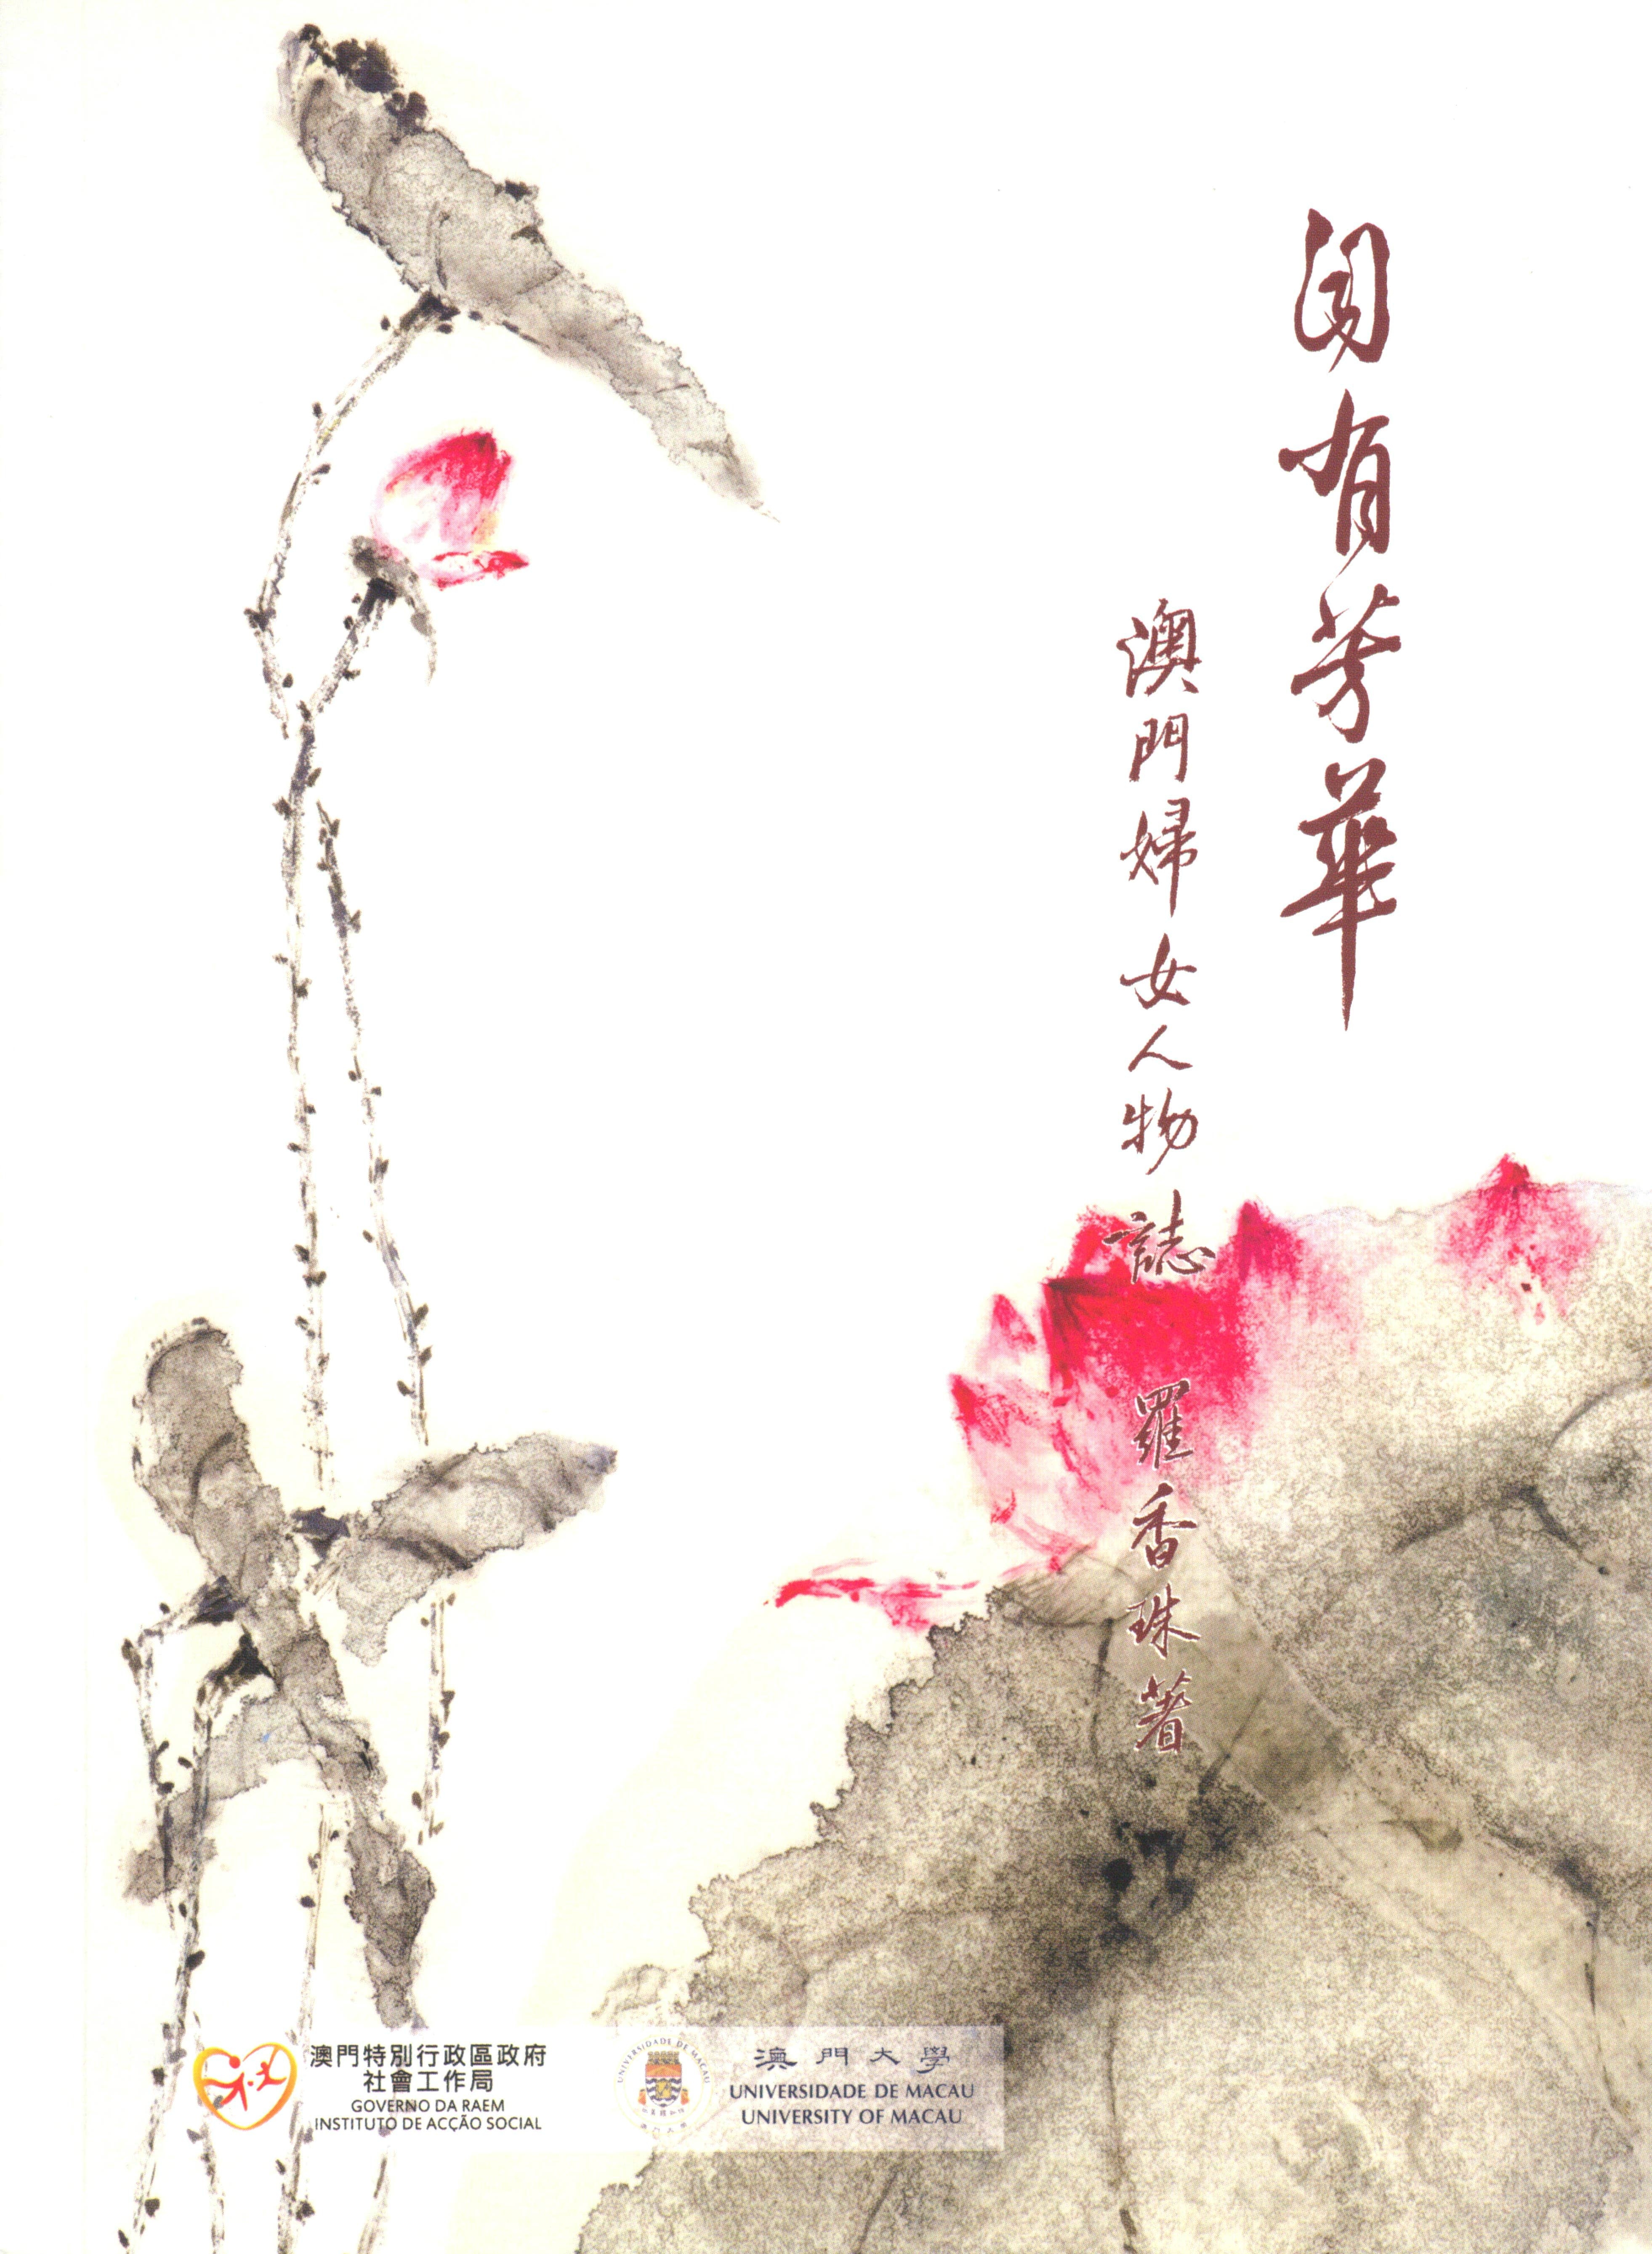 有芳華
澳門婦女人物誌 羅香珠著
澳門特別行政區政府
社會工作局
GOVERNO DA RAEM
INSTITUTO DE ACÇÃO SOCIAL
UNIVERSIDADE DE MACAU
澳門大學
UNIVERSIDADE DE MACAU
UNIVERSITY OF MACAU